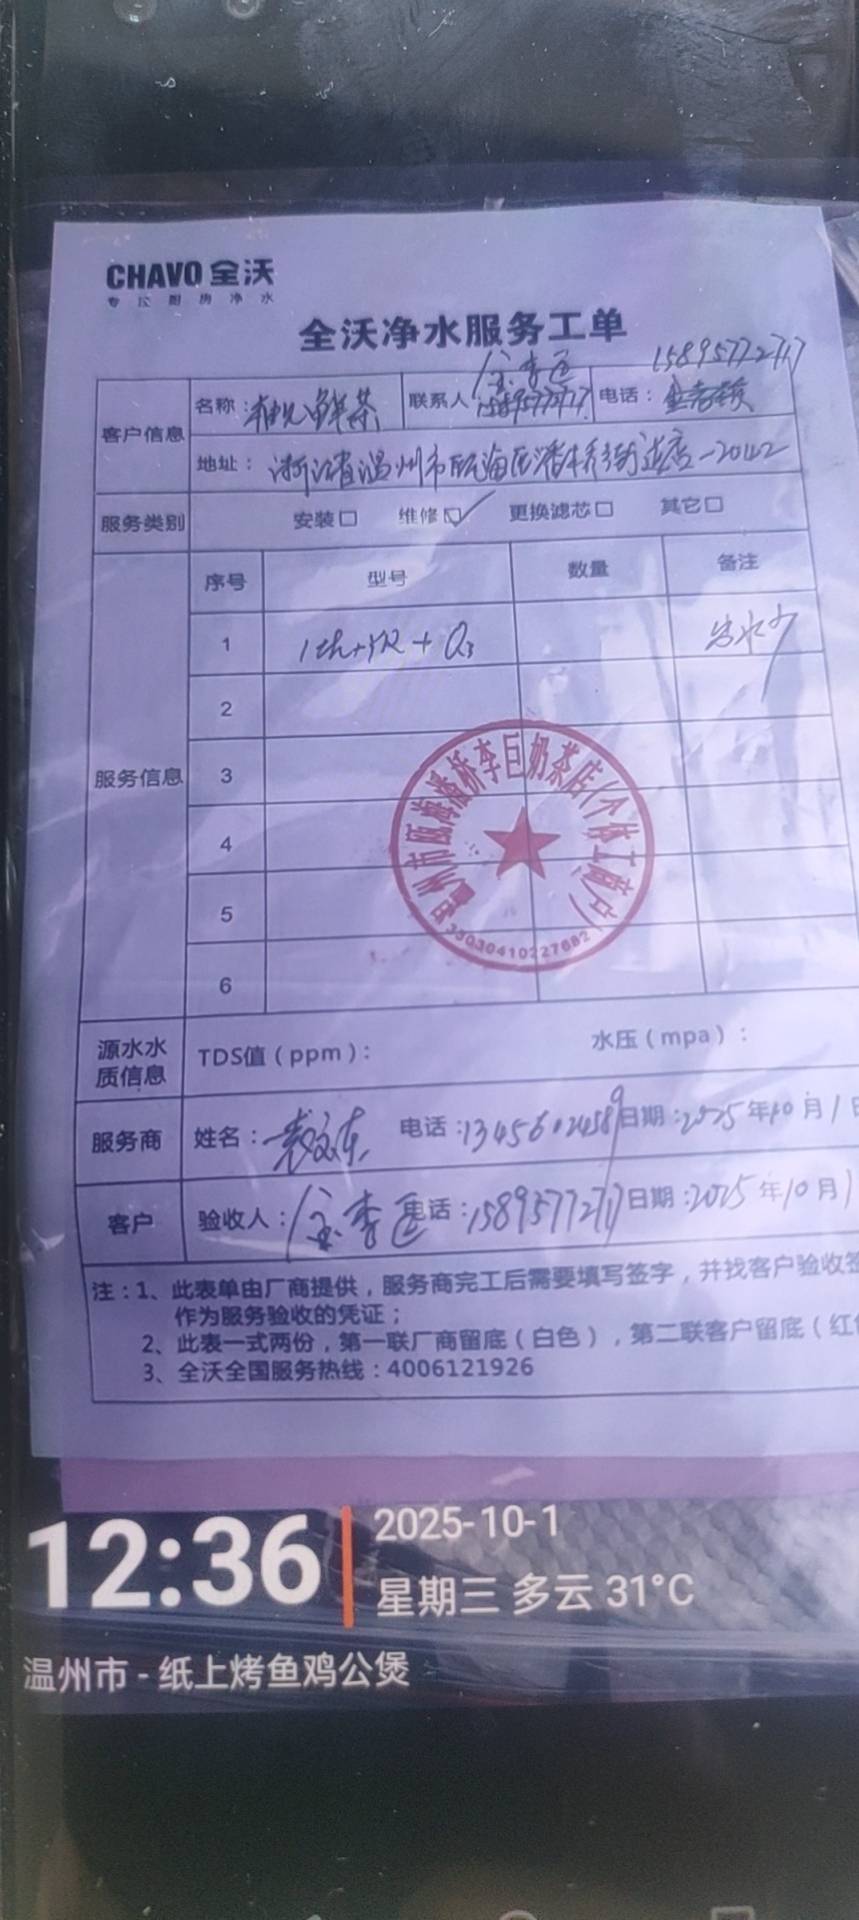 CHAVO 全沃
专注厨房净水
全沃净水服务工单
客户信息
名称： 鲜茶 联系人 电话：
15895772717
地址： 浙江省温州市瓯海区潘桥街道店-2042
服务类别 安装□ 维修☑ 更换滤芯□ 其它□
服务信息
序号 型号 数量 备注
1 出水少
2
3
4
5
6
温州市瓯海潘桥李巨奶茶店(个体工商户)
源水水质信息 TDS值（ppm）： 水压（mpa）：
服务商 姓名： 电话：13456024589 日期：2025年10月1日
客户 验收人： 李巨 电话：15895772717 日期：2025年10月1
注：1、此表单由厂商提供，服务商完工后需要填写签字，并找客户验收签
作为服务验收的凭证；
2、此表一式两份，第一联厂商留底（白色），第二联客户留底（红色
3、全沃全国服务热线：4006121926
12:36
2025-10-1
星期三 多云 31°C
温州市 - 纸上烤鱼鸡公煲